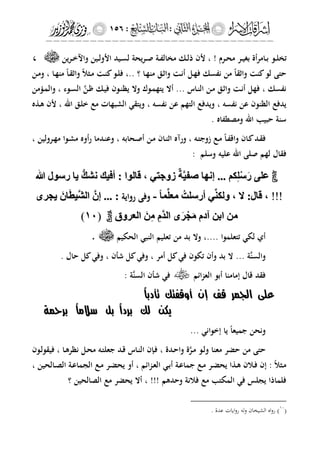 ١٥٦
تخلو بامرأة بغير محرم ! ، لأن ذلك مخالفة صريحة لسيد الأولين والآخرين ﷺ ،
حتى لو كنت واثقاً من نفسك فهل أنت واثق منها ؟ ... ، فلو كنت مثلاً واثقاً منها ، ومن
نفسك ، فهل أنت واثق من الناس ... ألا يتهموك ولا يظنون فيك ظنَّ السوء ، والمؤمن
يدفع الظنون عن نفسه ، ويدفع التهم عن نفسه ، ويتقي الشبهات مع خلق الله ، لأن هذه
سنة حبيب الله ومصطفاه .
فقد كان واقفاً مع زوجته ، ورآه اثنان من أصحابه ، وعندما رأوه مشوا مهرولين ،
فقال لهم صلى الله عليه وسلم :
على رَسْلِكم ... إنها صفيَّةُ زوجتي ، قالوا : أفيك نشكُّ يا رسول الله
!!! ، قال: لا ، ولكنِّي أُرسلتُ معلِّماً - وفى رواية : ... إنَّ الشَّيطَانَ يجرى
من ابن آدم مَجْرَى الدَّمِ مِنَ العروق (١٠)
أي لكي تتعلموا ....، ولا بد من تعليم النبي الحكيم ﷺ .
والسنَّة ... لا بد وأن تكون في كل أمر ، وفي كل شأن ، وفي كل حال .
فقد قال إمامنا أبو العزائم في شأن السنَّة :
على الجمر قف إن أوقفتك تأدباً
يكن لك برداً بل سلاماً برحمة
ونحن جميعاً يا إخواني ...
حتى من حضر معنا ولو مرَّة واحدة ، فإن الناس قد جعلته محل نظرها ، فيقولون
مثلاً : إن فلان هذا يحضر مع جماعة أبي العزائم ، أو يحضر مع الجماعة الصالحين ،
فلماذا يجلس في المكتب مع فلانة وحدهم !!! ألا يحضر مع الصالحين ؟
(١٠) رواه الشيخان وله روايات عدة .